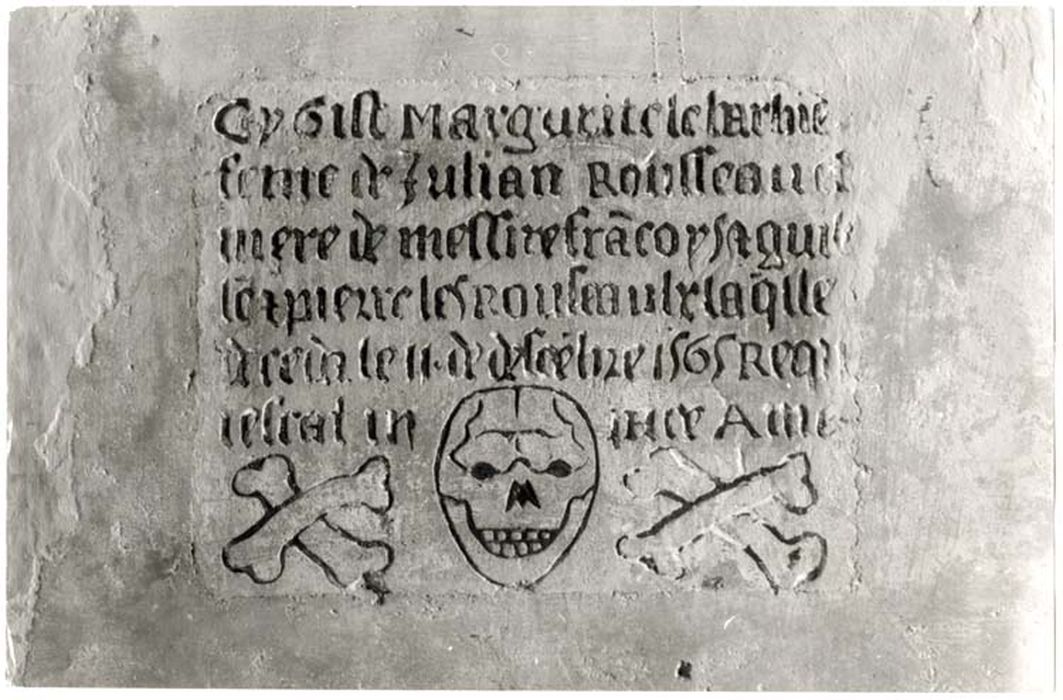 Cy Gist Margurite le barbie
feme de Julian Rousseau et
mere de messire frãcoys aguil
le & pierre les Rouseaulx laq̃lle
deceda le 11 de desẽbre 1565 Requi
iescat in pace Ame